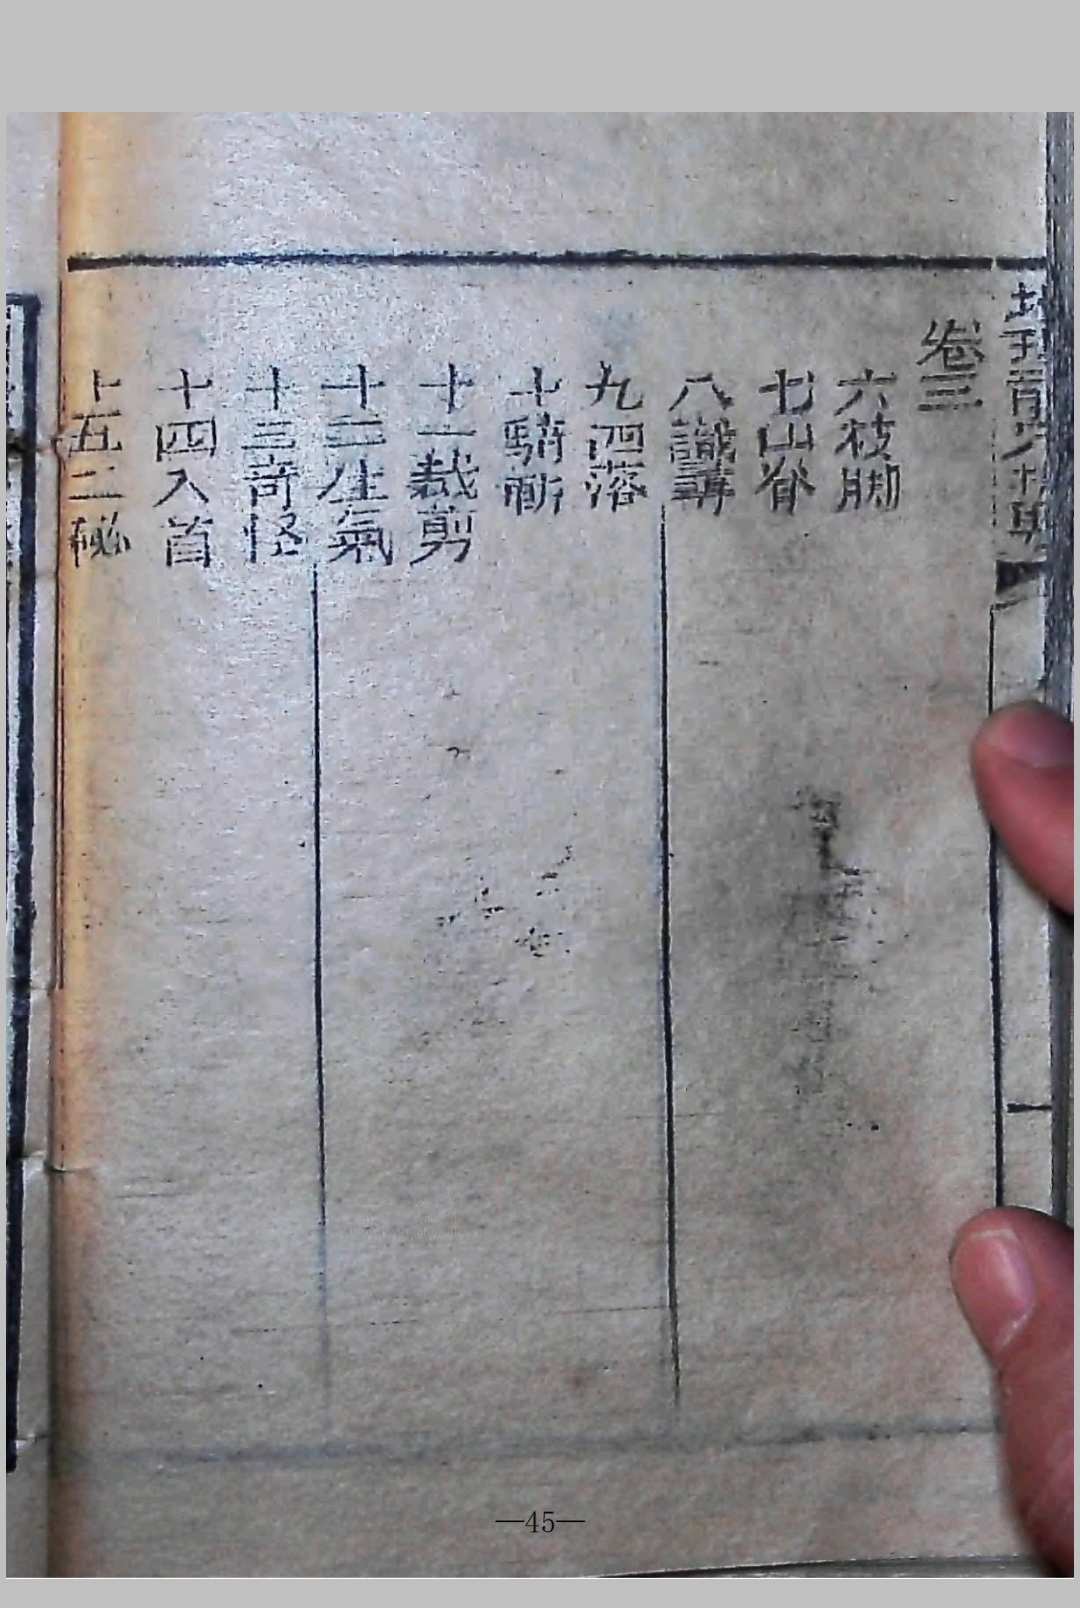 卷三
六枝脚
七山脊
八識溝
九泗落
十驕斬
十一裁剪
十二生氣
十三奇怪
十四入首
十五二秘
—45—